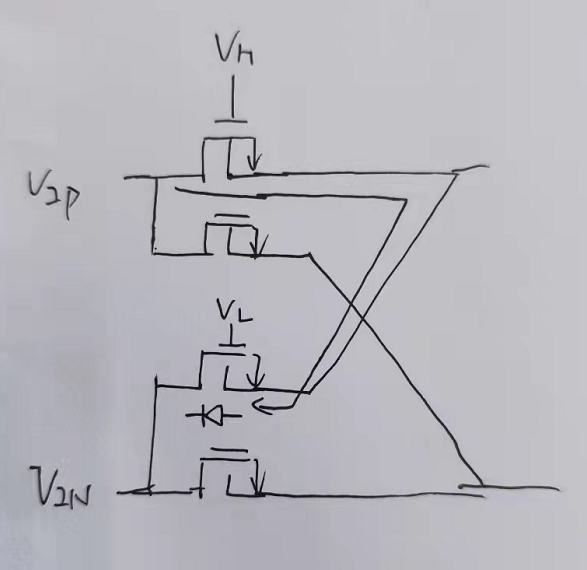 VH
V2P
VL
V2N